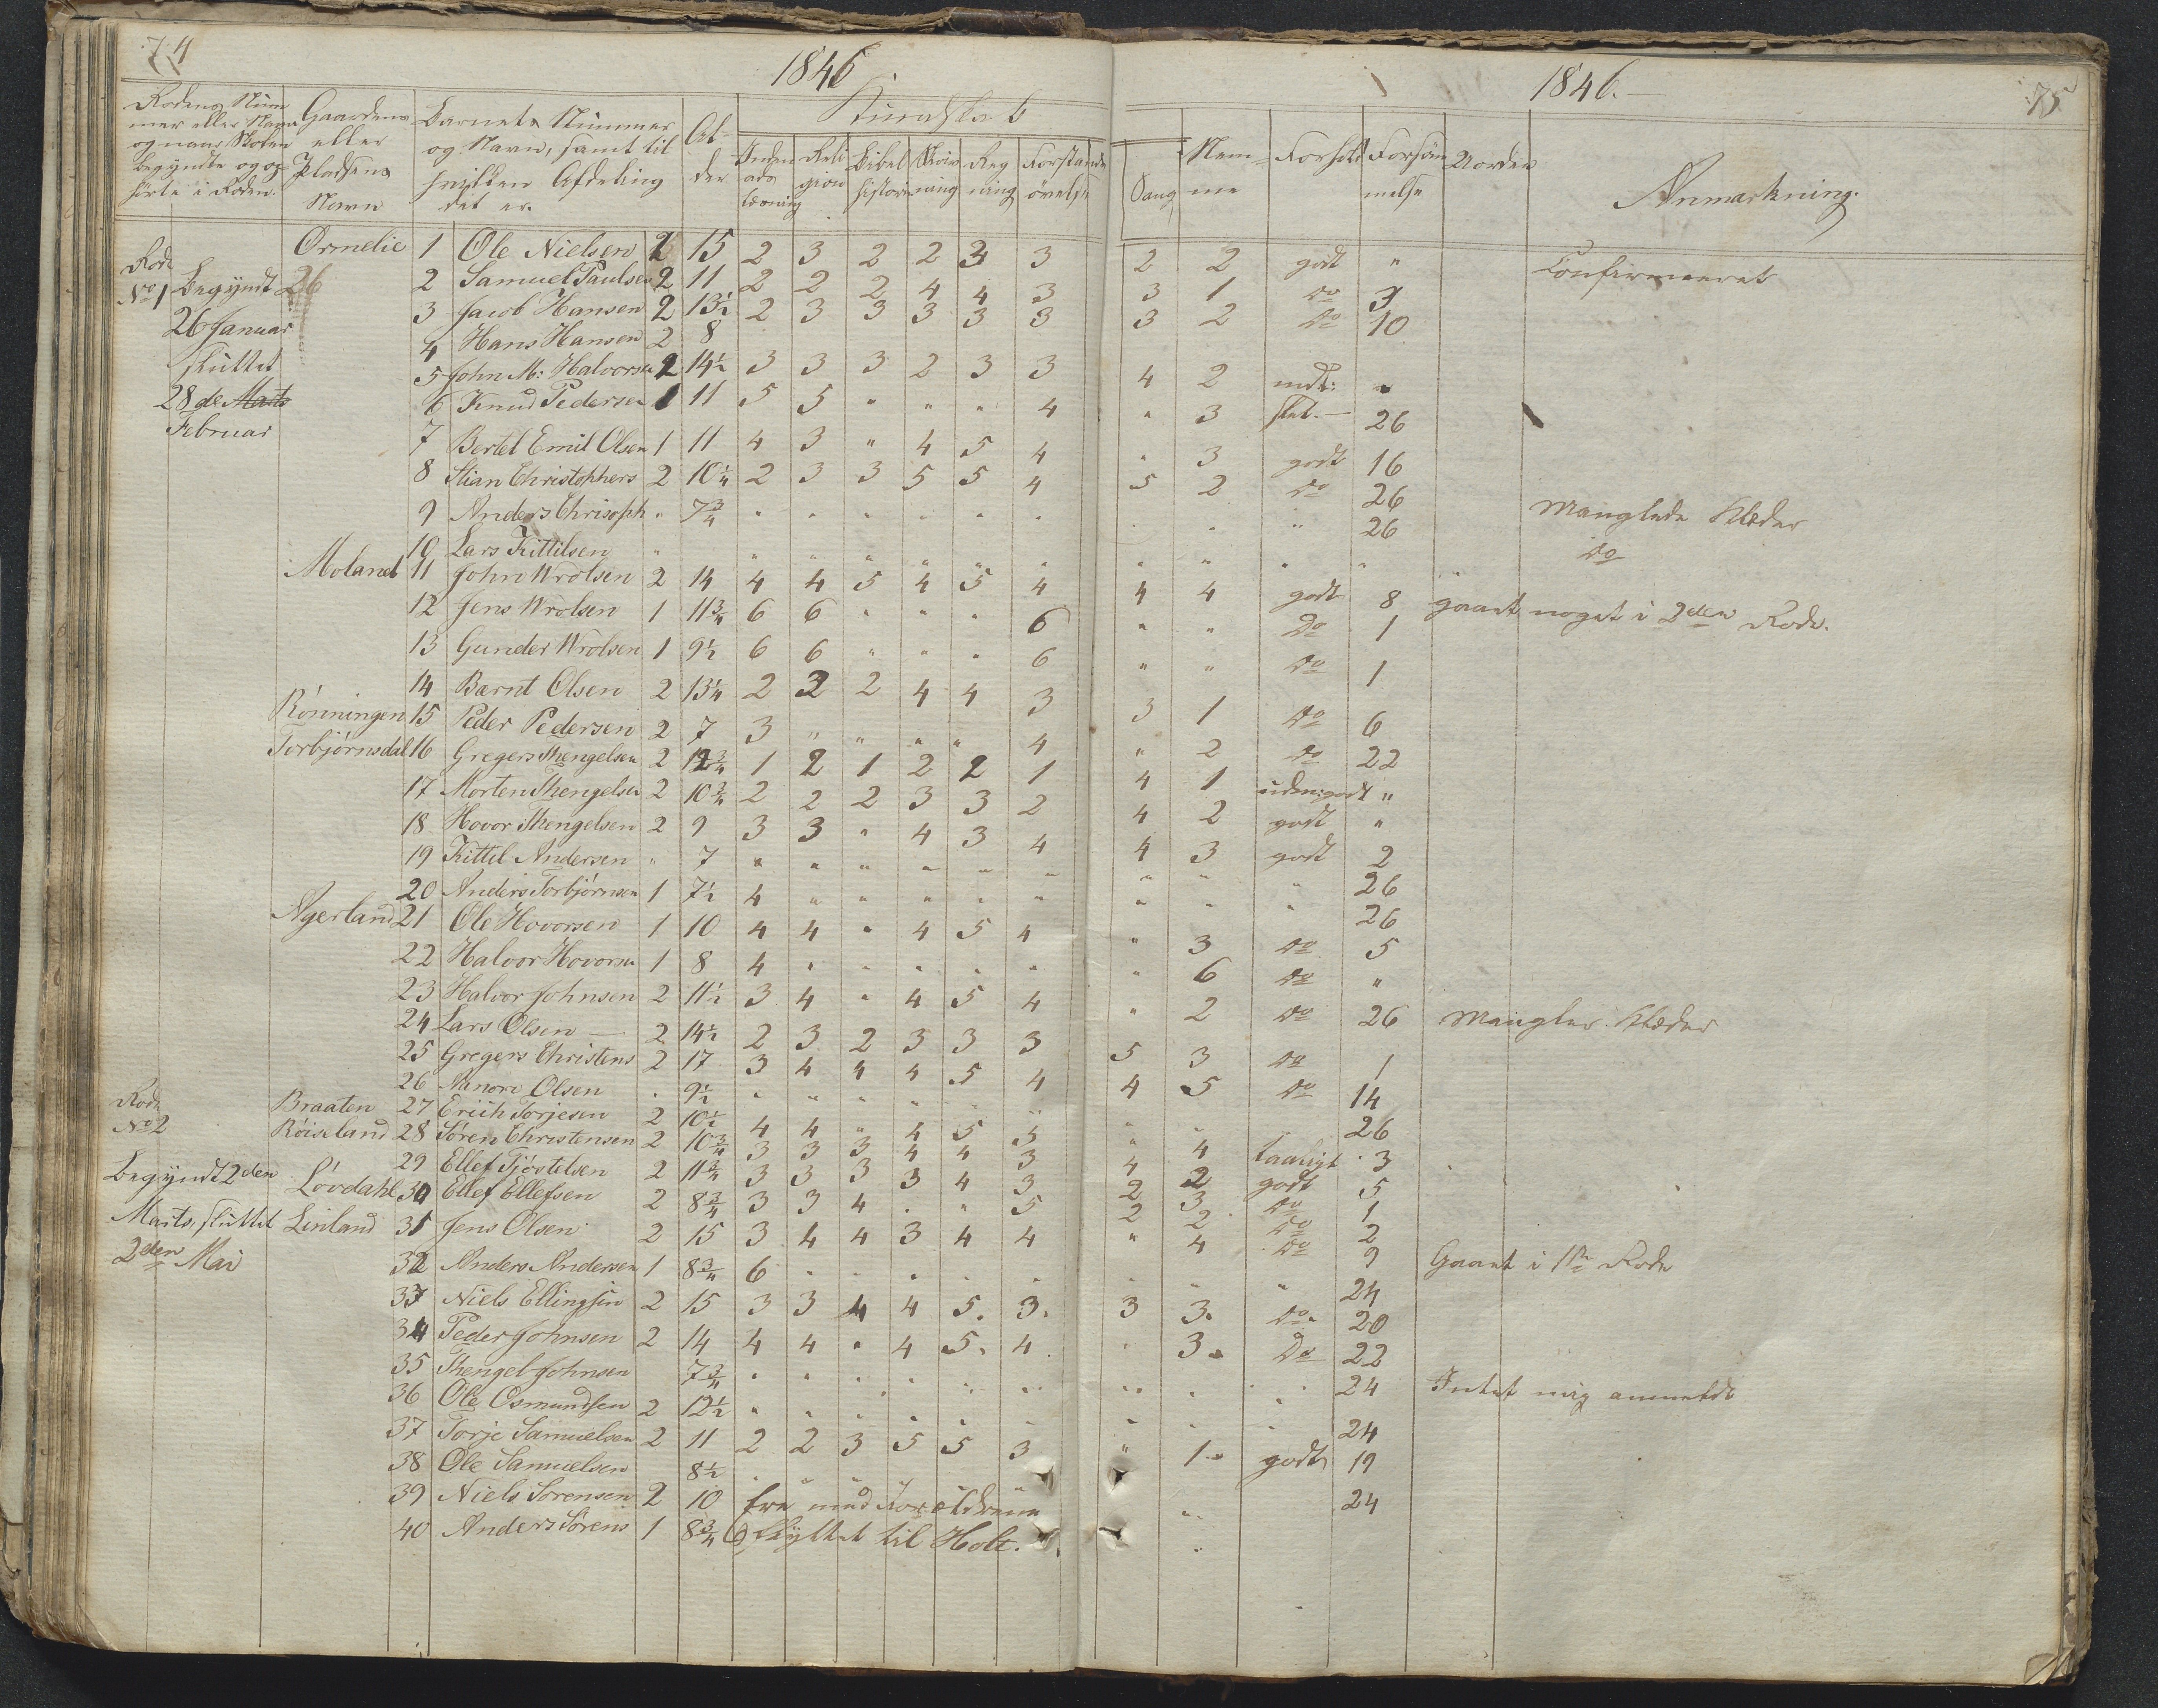 74
1846
Kundskab
Rodens Num Gaardens Barnets Nummer Al-
mer eller Navn eller og Navn, samt til der
og naar Skolen Pladsens hvilken Afdeling
begyndte og op- Navn det er.
hørte i Roden.
Inden ads læsning Reli gion Bibel historie Skriv ning Reg ning Forstands øvelse
Rode Ormelie 1 Ole Nielsen 2 15 2 3 2 2 3 3
No 1 Begyndt 26 2 Samuel Paulsen 2 11 2 2 2 4 4 3
26 Januar 3 Jacob Hansen 2 13½ 2 3 3 3 3 3
sluttet 4 Hans Hansen 2 8
28de Marts 5 John M: Halvorsen 2 14½ 3 3 3 2 3 3
Februar 6 Knud Pedersen 1 11 5 5 " " " 4
7 Bertel Emil Olsen 1 11 4 3 " 4 5 4
8 Stian Christophers 2 10¼ 2 3 3 5 5 4
9 Anders Chrisoph " 7¾ " " " " " "
10 Lars Kittilsen " " " " " " "
Moland 11 John Wrolsen 2 14 4 4 5 4 5 4
12 Jens Wrolsen 1 11¾ 6 6 " " " 6
13 Gunder Wrolsen 1 9½ 6 6 " " " 6
14 Barnt Olsen 2 13¼ 2 2 2 4 4 3
Rönningen 15 Peder Pedersen 2 7 3 " " " " 4
Torbjørnsdal 16 Gregers Thengelsen 2 12¾ 1 2 1 2 2 1
17 Morten Thengelsen 2 10¾ 2 2 2 3 3 2
18 Hovor Thengelsen 2 9 3 3 " 4 3 4
19 Kittil Andersen " 7 " " " " " "
20 Anders Torbjørnsen 1 7½ 4 " " " " "
Agerland 21 Ole Hovorsen 1 10 4 4 " 4 5 4
22 Halvor Hovorsen 1 8 4 " " " " "
23 Halvor Johnsen 2 11½ 3 4 " 4 5 4
24 Lars Olsen — 2 14½ 2 3 2 3 3 3
25 Gregers Christens 2 17 3 4 4 4 5 4
26 Olsen " 9½ " " " " " "
Rode Braaten 27 Erich Torjesen 2 10½ 4 4 " 4 5 5
No 2 Röiseland 28 Sören Christensen 2 10¾ 3 3 3 4 4 3
29 Ellef Tjöstelsen 2 11¾ 3 3 3 3 4 3
Begyndt 2den Lövdahl 30 Ellef Ellefsen 2 8¾ 3 3 4 " " 5
Marts, sluttet Linland 31 Jens Olsen 2 15 3 4 4 3 4 4
2den Mai 32 Anders Andersen 1 8¾ 6 " " " " "
33 Niels Ellingsen 2 15 3 3 4 4 5. 3.
34 Peder Johnsen 2 14 4 4 " 4 5. 4.
35 Thengel Johnsen 7¾ " " " " " "
36 Ole Osmundsen 2 12½ " " " " " "
37 Torje Samuelsen 2 11 2 2 3 5 5 3
38 Ole Samuelsen 8½ " " " "
39 Niels Sorensen 2 10 Ere med Forældrene
40 Anders Sörens 1 8¾ flyttet til Holt.
1846.—
75
Sang Nem- me Forhold Forsöm melse Uorden Anmærkning.
2 2 godt " Confirmeret
3 1 do 3
3 2 do 10
4 2 mdt: "
" 3 slet — 26
" 3 godt 16
5 2 do 26 Manglede Klæder
" " " 26 do
" " " "
4 4 godt 8 gaaet noget i 2den Rode.
" " Do 1
" " do 1
3 1 do 6
" 2 do 22
4 1 udm:godt "
4 2 godt "
4 3 godt 2
" " " 26
" " " 26
" 3 do 5
" 6 do "
" 2 do 26 Mangler Klæder
5 3 do 1
4 5 do 14
" " 26
" 4 taaligt 3
4 2 godt 5
2 3 do 1
2 2 do 2
" 4 do 9 Gaaet i 1ste Rode
" " " 24
3 3. do. 20
" 3. Do 22
" " " 24 Intet mig anmeldt
" " " 24
" 1. godt 19
" 24
"